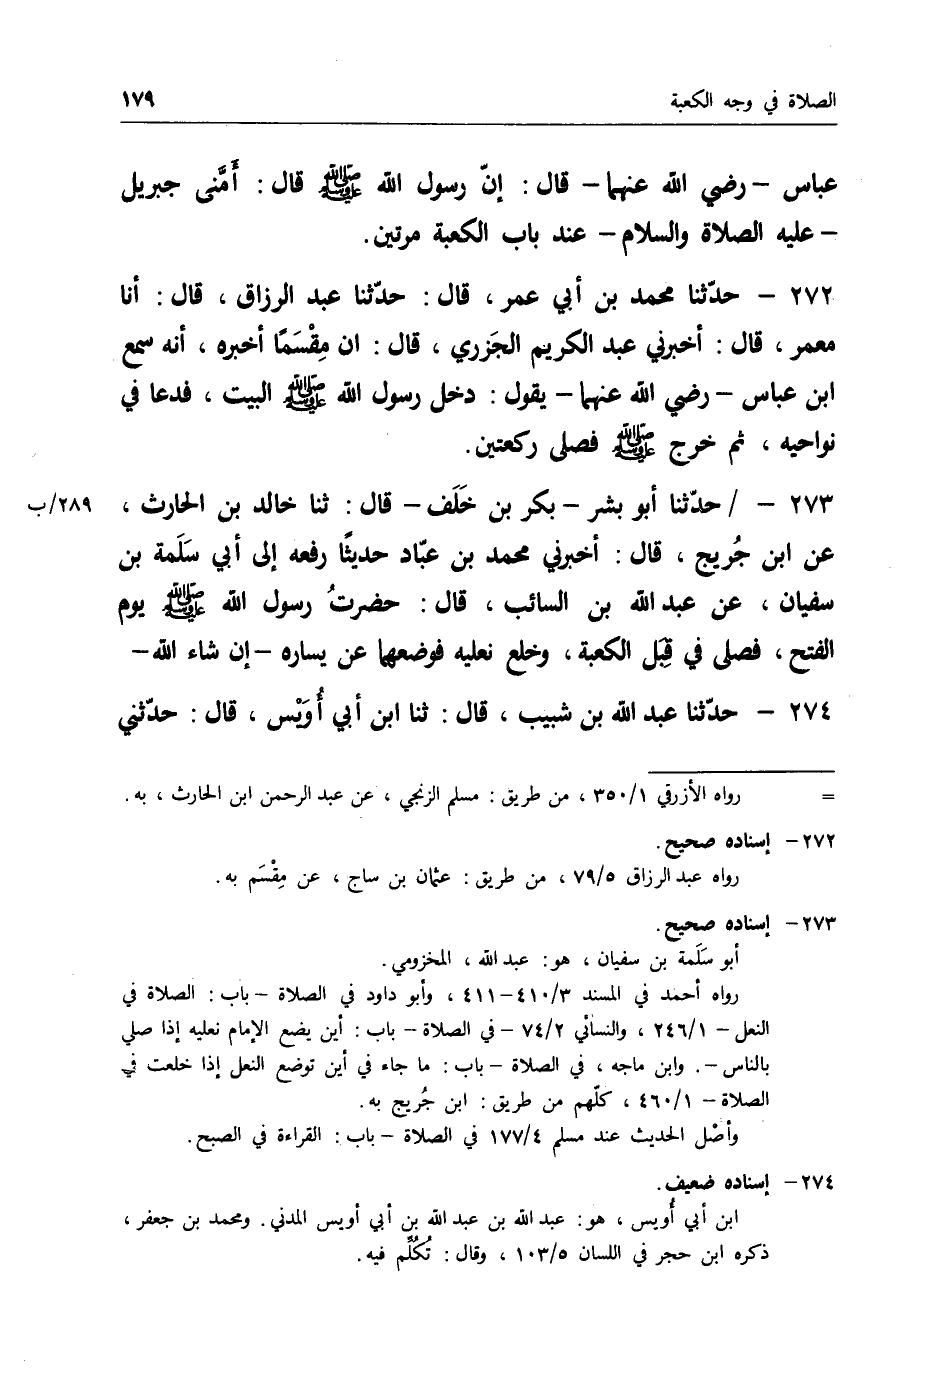 الصلاة في وجه الكعبة ١٧٩
عباس – رضي الله عنهما – قال : إنّ رسول الله ﷺ قال : أَمَّنى جبريل
– عليه الصلاة والسلام – عند باب الكعبة مرتين.
٢٧٢ – حدّثنا محمد بن أبي عمر ، قال : حدّثنا عبد الرزاق ، قال : أنا
معمر ، قال : أخبرني عبد الكريم الجَزري ، قال : ان مِقْسَمًا أخبره ، أنه سمع
ابن عباس – رضي الله عنهما – يقول : دخل رسول الله ﷺ البيت ، فدعا في
نواحيه ، ثم خرج ﷺ فصلى ركعتين.
٢٧٣ – / حدّثنا أبو بشر – بكر بن خَلَف – قال : ثنا خالد بن الحارث ، ٢٨٩/ب
عن ابن جُريج ، قال : أخبرني محمد بن عبّاد حديثًا رفعه إلى أبي سَلَمة بن
سفيان ، عن عبد الله بن السائب ، قال : حضرتُ رسول الله ﷺ يوم
الفتح ، فصلى في قِبَل الكعبة ، وخلع نعليه فوضعها عن يساره – إن شاء الله –
٢٧٤ – حدّثنا عبد الله بن شبيب ، قال : ثنا ابن أبي أُوَيْس ، قال : حدّثني
= رواه الأزرقي ٣٥٠/١ ، من طريق : مسلم الزنجي ، عن عبد الرحمن ابن الحارث ، به.
٢٧٢ – إسناده صحيح.
رواه عبد الرزاق ٧٩/٥ ، من طريق : عثمان بن ساج ، عن مِقْسَم به.
٢٧٣ – إسناده صحيح.
أبو سَلَمة بن سفيان ، هو : عبد الله ، المخزومي.
رواه أحمد في المسند ٤١٠/٣–٤١١ ، وأبو داود في الصلاة – باب : الصلاة في
النعل – ٢٤٦/١ ، والنسائي ٧٤/٢ – في الصلاة – باب : أين يضع الإمام نعليه إذا صلي
بالناس –. وابن ماجه ، في الصلاة – باب : ما جاء في أين توضع النعل إذا خلعت في
الصلاة – ٤٦٠/١ ، كلّهم من طريق : ابن جُريج به.
وأصْل الحديث عند مسلم ١٧٧/٤ في الصلاة – باب : القراءة في الصبح.
٢٧٤ – إسناده ضعيف.
ابن أبي أُويس ، هو : عبد الله بن عبد الله بن أبي أويس المدني. ومحمد بن جعفر ،
ذكره ابن حجر في اللسان ١٠٣/٥ ، وقال : تُكُلِّم فيه.